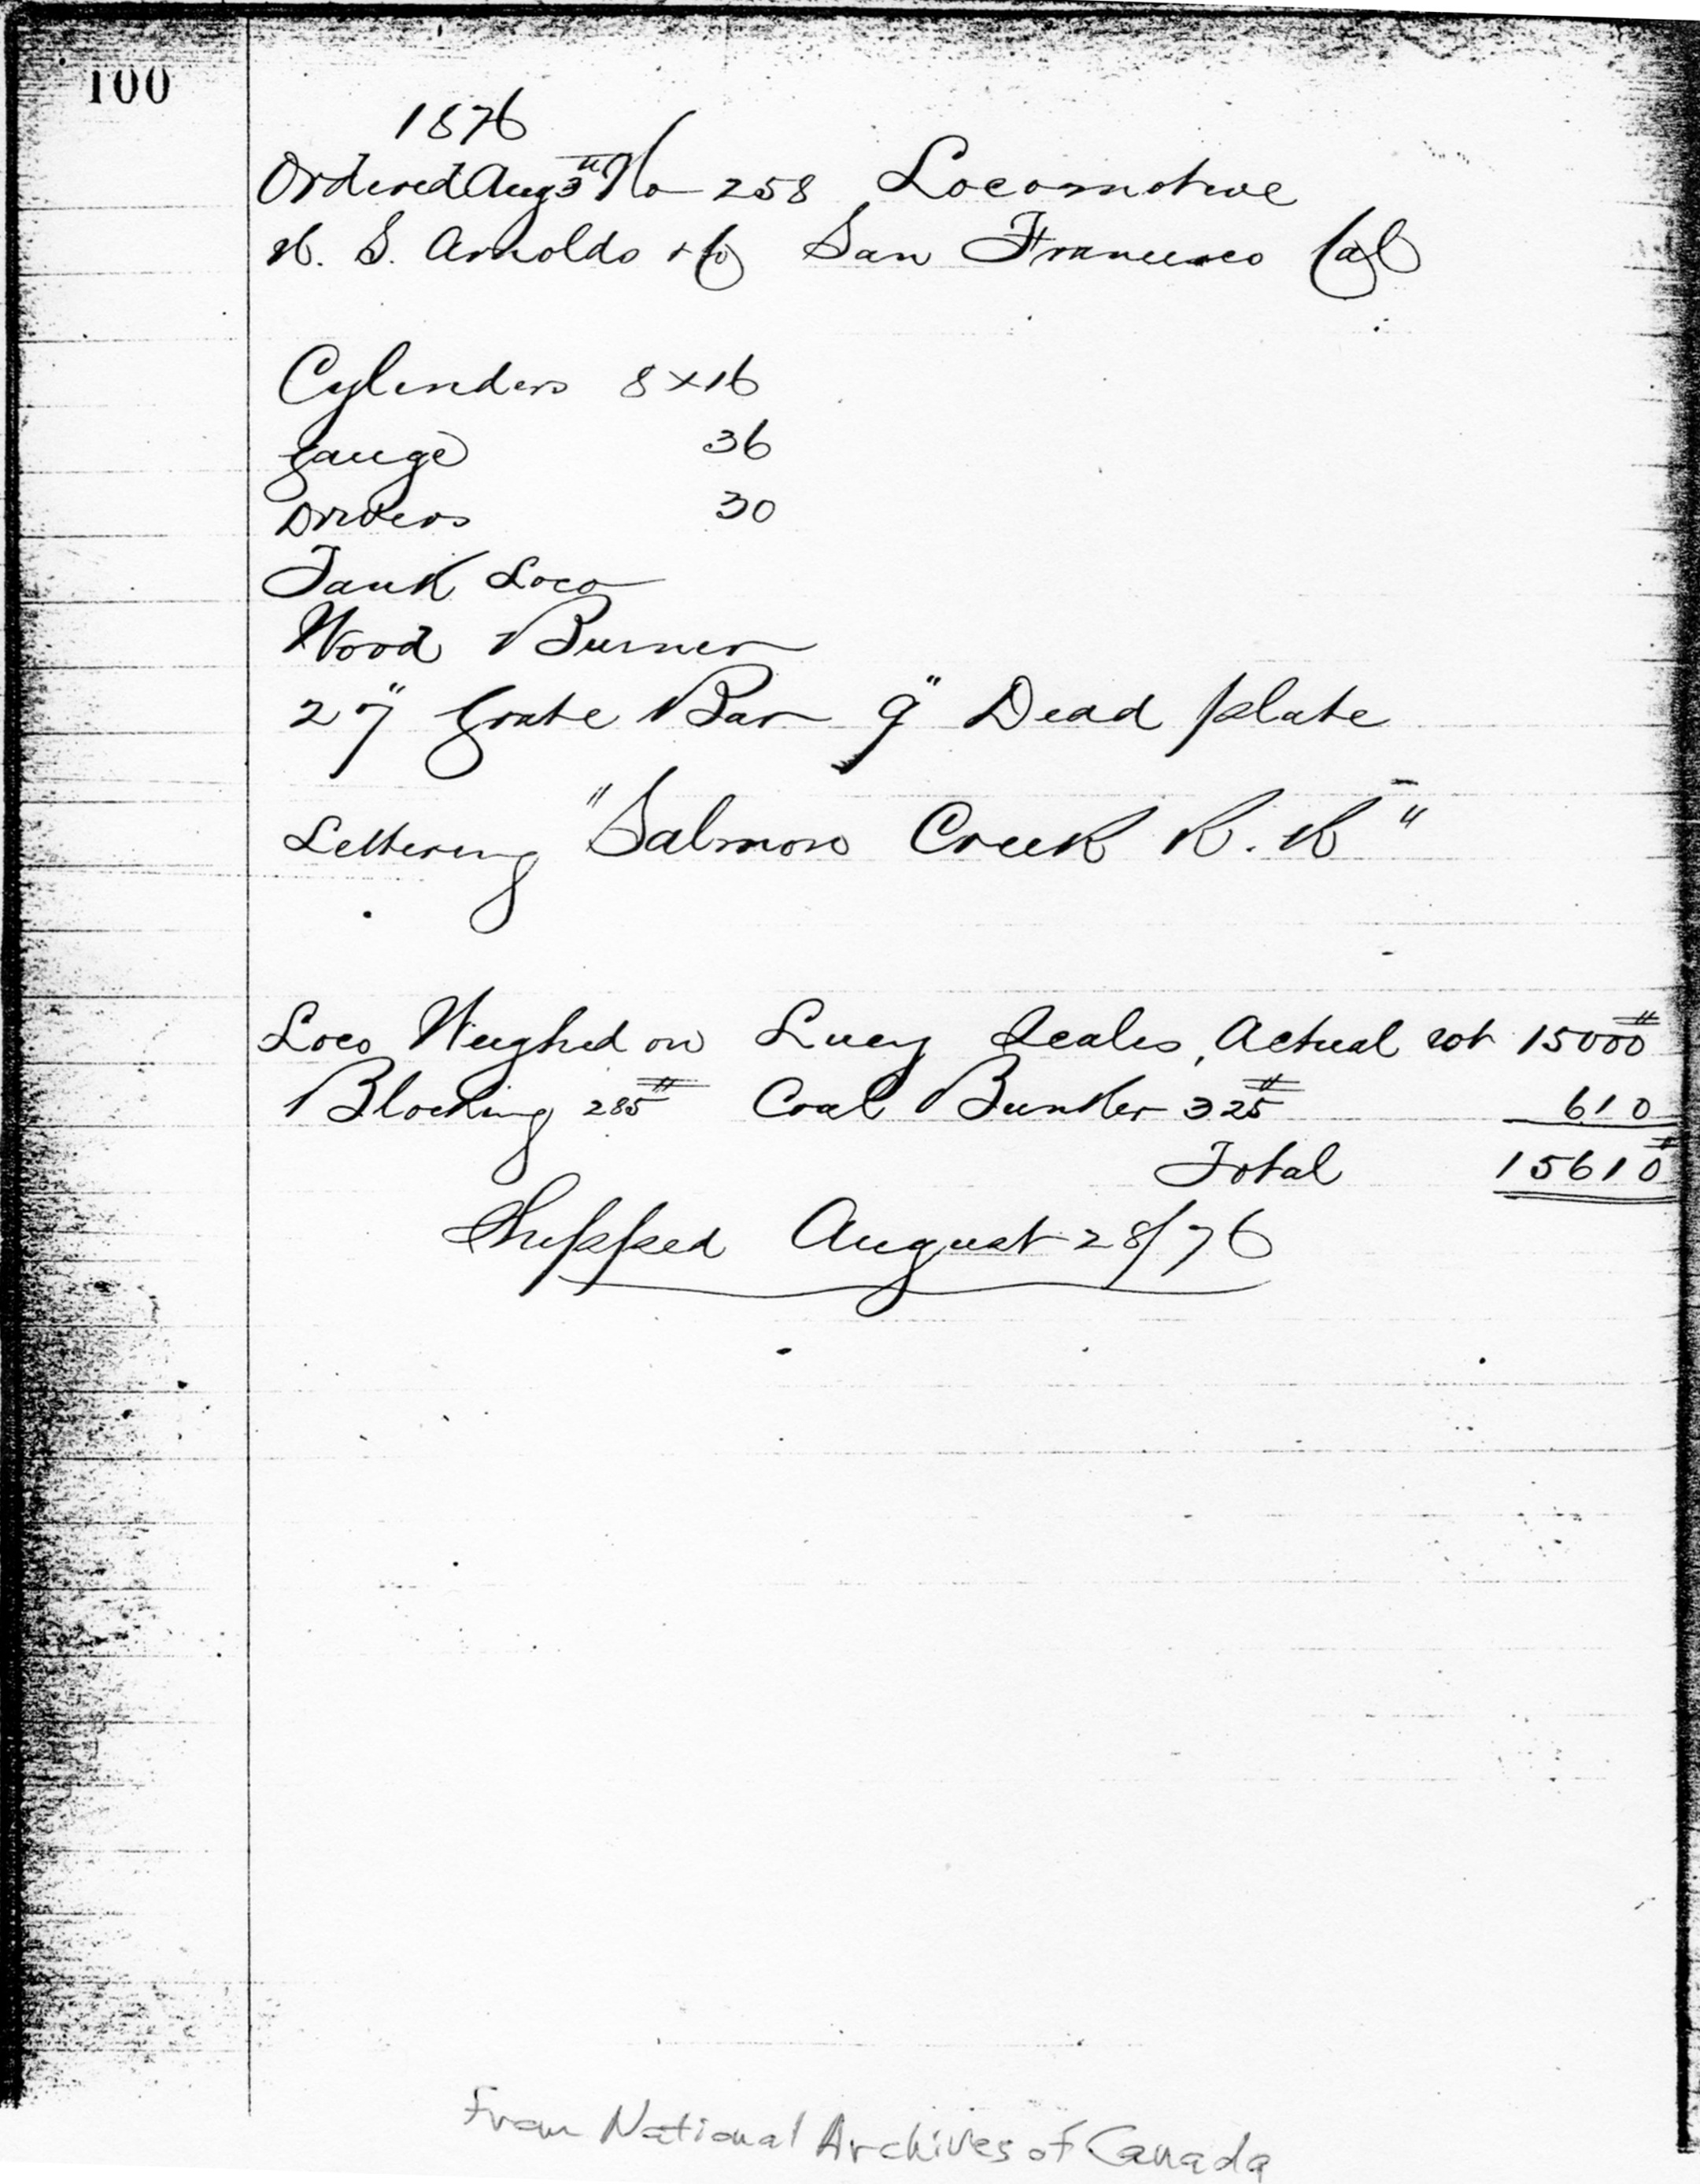 100
1876
Ordered Aug 3" No 258 Locomotive
N. S. Arnolds + Co San Francisco Cal
Cylinders 8 x 16
Gauge 36
Drivers 30
Tank Loco
Wood Burner
27" Grate Bar 9" Dead plate
Lettering "Salmon Creek R. R"
Loco Weighed on Lucy Scales, Actual wt 15000#
Blocking 285# Coal Bunker 325# 610
Total 15610#
Shipped August 28/76
From National Archives of Canada